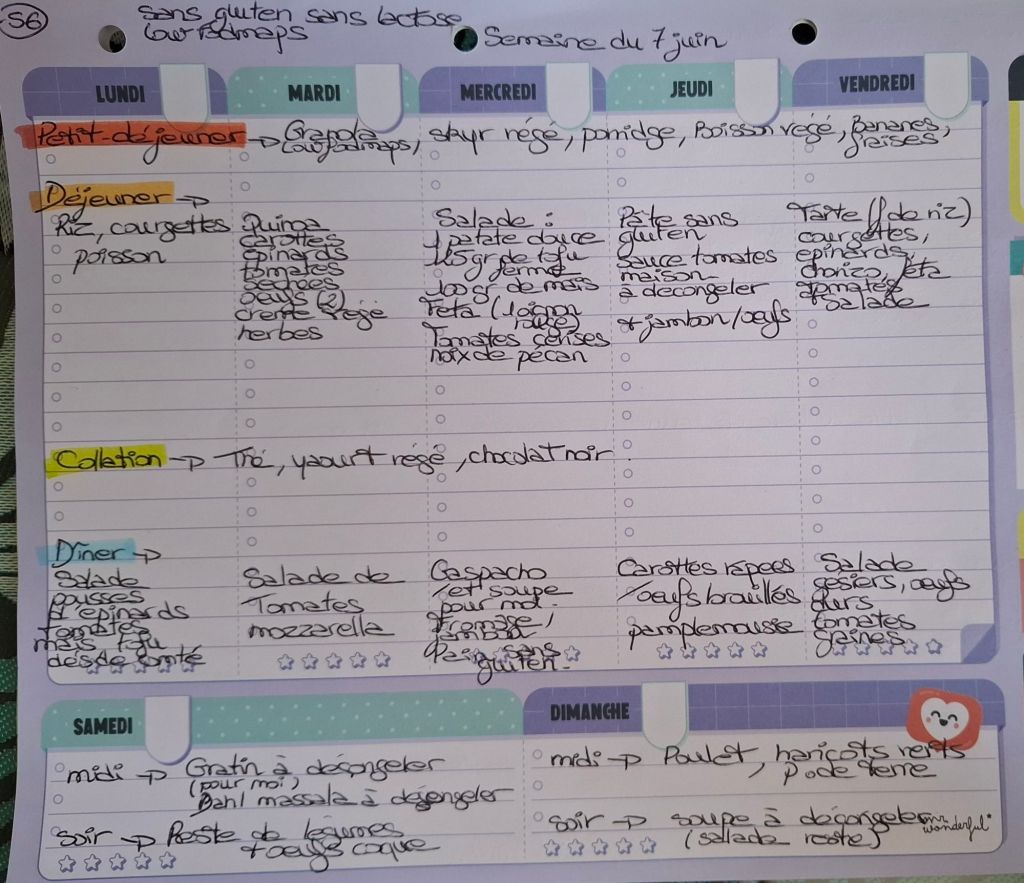 S6
sans gluten sans lactose
low fodmaps
Semaine du 7 juin
LUNDI
MARDI
MERCREDI
JEUDI
VENDREDI
Petit-déjeuner → Granola, skyr végé, porridge, Boisson végé, Bananes,
lowfodmaps, fraises
Déjeuner →
Riz, courgettes
poisson
Quinoa
carottes
épinards
tomates
sechées
oeufs (2)
creme végé
herbes
Salade :
1 patate douce
125 gr de tofu
fermé
100 gr de maïs
Feta (1 oignon
rouge)
Tomates cerises
noix de pécan
Pâte sans
gluten
sauce tomates
maison
à decongeler
+ jambon/oeufs
Tarte (f de riz)
courgettes,
epinards,
chorizo, feta
tomates
+ salade
Collation → Thé, yaourt végé, chocolat noir
Dîner →
Salade
pousses
d'epinards
tomates
maïs tofu
dés de comté
Salade de
Tomates
mozzarella
Gaspacho
/et soupe
pour moi.
Fromage/
jambon
Pain sans
gluten.
Carottes rapées
/oeufs brouillés
pamplemousse
Salade
gésiers, oeufs
durs
tomates
graines
SAMEDI
midi → Gratin à décongeler
(pour moi,
Dahl massala à décongeler
soir → Reste de légumes
+ oeufs coque
DIMANCHE
midi → Poulet, haricots verts
p de terre
soir → soupe à décongeler
(salade reste)
mr wonderful*